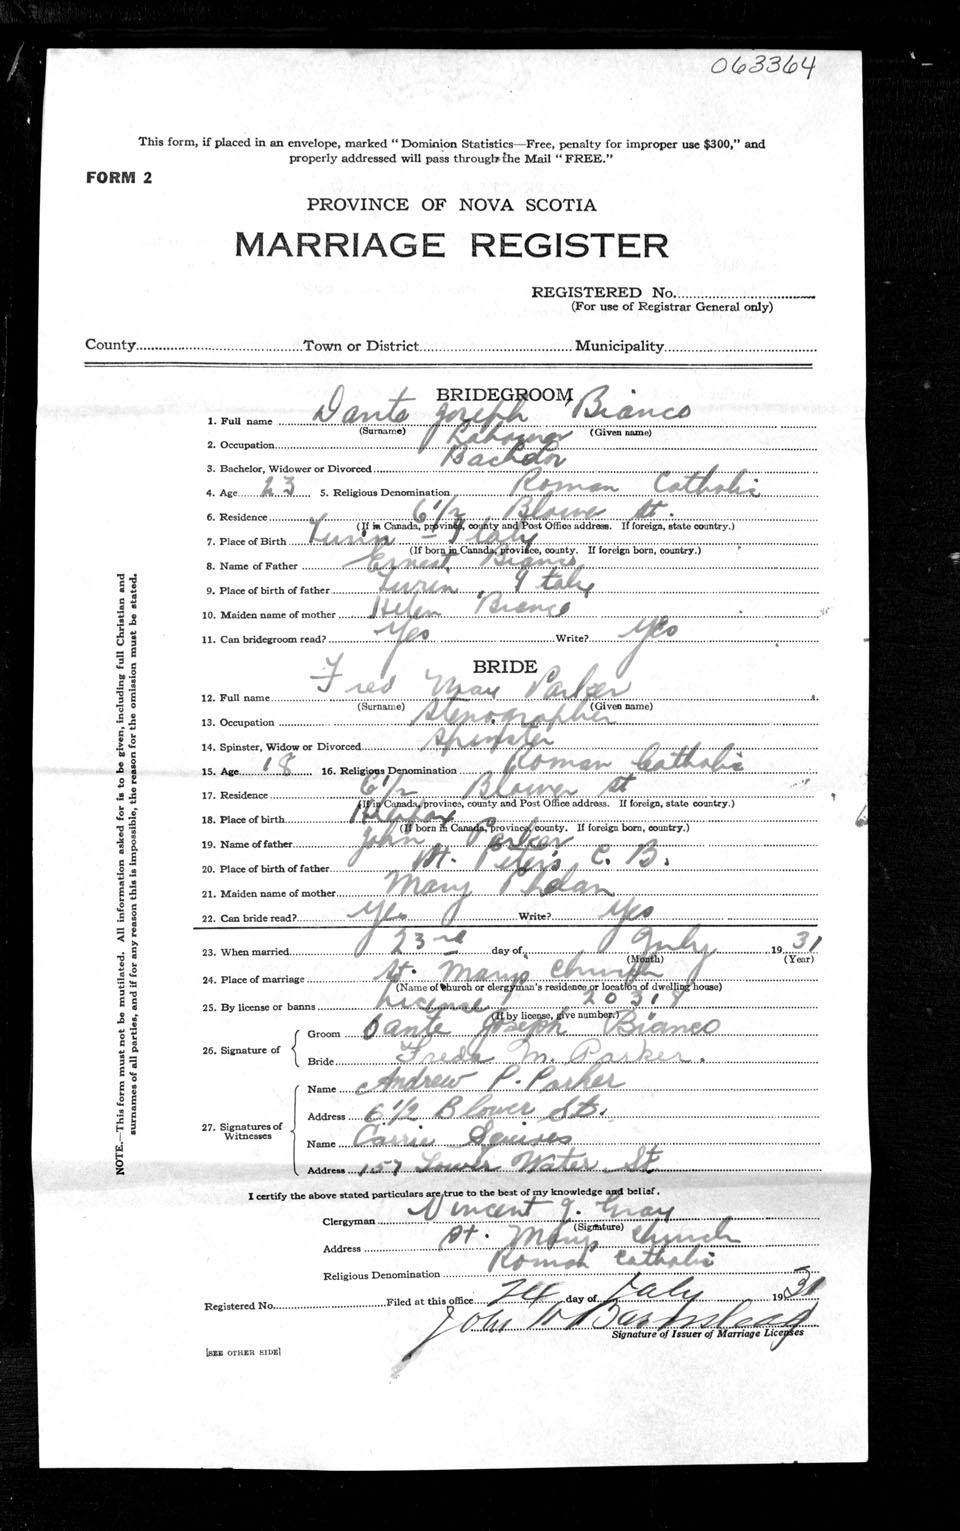 063364
This form, if placed in an envelope, marked "Dominion Statistics—Free, penalty for improper use $300," and
properly addressed will pass through the Mail "FREE."
FORM 2
PROVINCE OF NOVA SCOTIA
MARRIAGE REGISTER
REGISTERED No.
(For use of Registrar General only)
County Town or District Municipality
BRIDEGROOM
1. Full name Dante Joseph Bianco
(Surname) (Given name)
2. Occupation
3. Bachelor, Widower or Divorced Bachelor
4. Age 23 5. Religious Denomination Roman Catholic
6. Residence 61/2 Blower St.
(If in Canada, province, county and Post Office address. If foreign, state country.)
7. Place of Birth Turin - Italy
(If born in Canada, province, county. If foreign born, country.)
8. Name of Father Ernest Bianco
9. Place of birth of father Turen, Italy
10. Maiden name of mother Helen Bianco
11. Can bridegroom read? Yes Write? Yes
BRIDE
12. Full name Freo May Parker
(Surname) (Given name)
13. Occupation Stenographer
14. Spinster, Widow or Divorced Spinster
15. Age 18 16. Religious Denomination Roman Catholic
17. Residence 61/2 Blower St
(If in Canada, province, county and Post Office address. If foreign, state country.)
18. Place of birth Halifax
(If born in Canada, province, county. If foreign born, country.)
19. Name of father John Parker
20. Place of birth of father St. Peter's C. B.
21. Maiden name of mother Mary Phelan
22. Can bride read? Yes Write? Yes
23. When married 23rd day of July 1931
(Month) (Year)
24. Place of marriage St. Marys Church
(Name of church or clergyman's residence or location of dwelling house)
25. By license or banns License 20318
(If by license, give number.)
26. Signature of
Groom Dante Joseph Bianco
Bride Freda M. Parker.
27. Signatures of Witnesses
Name Andrew P. Parker
Address 61/2 Blower St.
Name Carrie Squires
Address 157 Lower Water St
I certify the above stated particulars are true to the best of my knowledge and belief.
Clergyman Vincent J. Gray
(Signature)
Address St. Marys Church
Religious Denomination Roman Catholic
Registered No. Filed at this office 24 day of July 1931
John
Signature of Issuer of Marriage Licenses
[SEE OTHER SIDE]
NOTE.—This form must not be mutilated. All information asked for is to be given, including full Christian and
surnames of all parties, and if for any reason this is impossible, the reason for the omission must be stated.